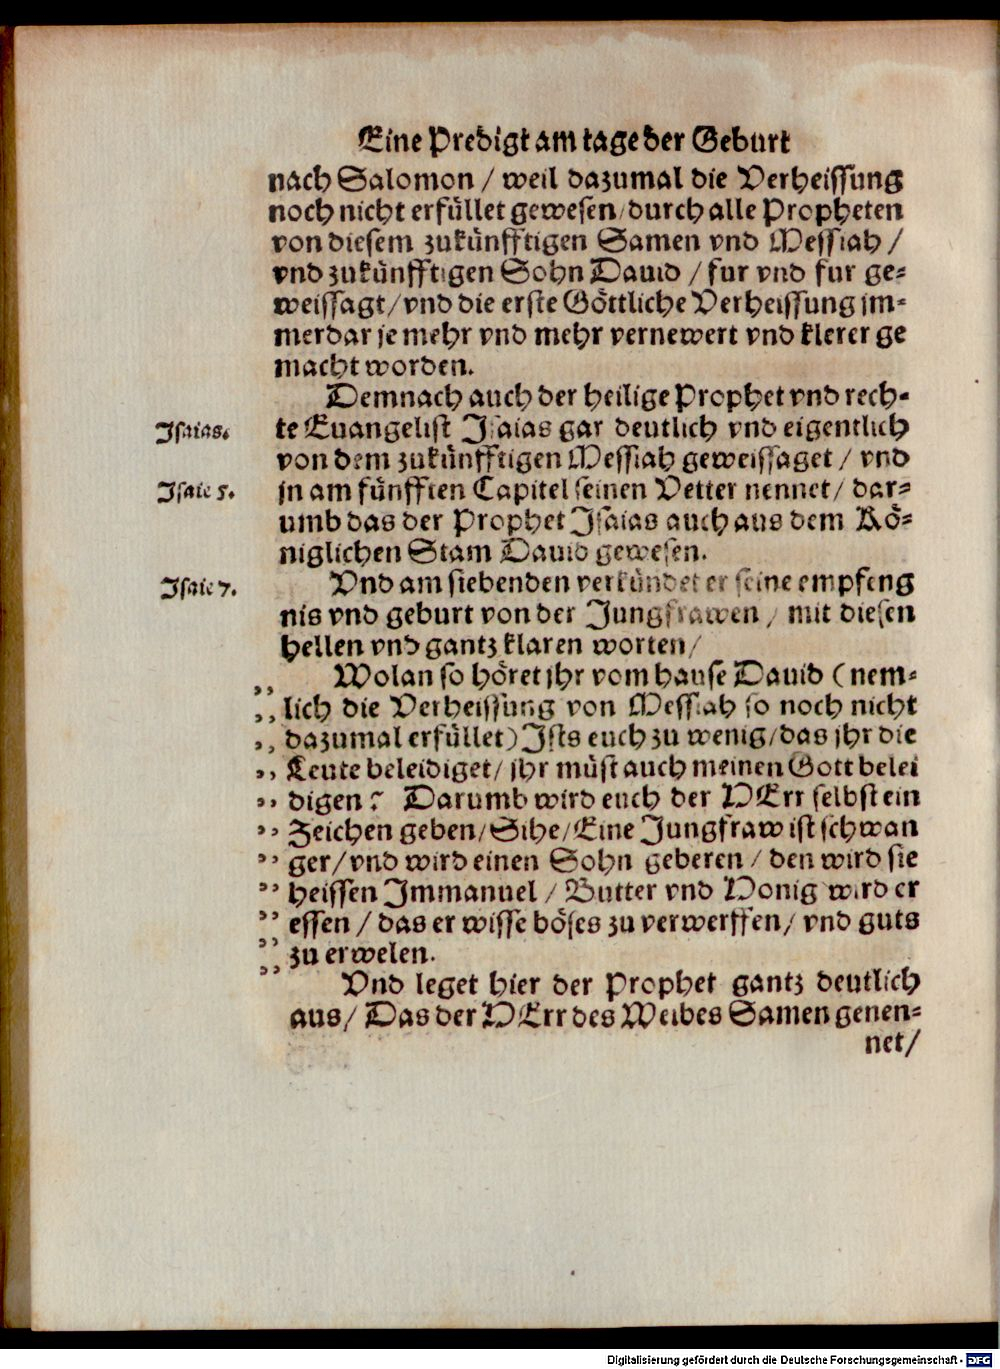 Eine Predigt am tage der Geburt
nach Salomon / weil dazumal die Verheissung
noch nicht erfüllet gewesen / durch alle Propheten
von diesem zukünfftigen Samen vnd Messiah /
vnd zukünfftigen Sohn Dauid / fur vnd fur ge=
weissagt / vnd die erste Göttliche Verheissung jm=
merdar je mehr vnd mehr vernewert vnd klerer ge
macht worden.
Demnach auch der heilige Prophet vnd rech=
Isaias.
te Euangelist Isaias gar deutlich vnd eigentlich
von dem zukünfftigen Messiah geweissaget / vnd
Isaie 5.
jn am fünfften Capitel seinen Vetter nennet / dar=
umb das der Prophet Isaias auch aus dem Kö=
niglichen Stam Dauid gewesen.
Isaie 7.
Vnd am siebenden verkündet er seine empfeng
nis vnd geburt von der Jungfrawen / mit diesen
hellen vnd gantz klaren worten /
,, Wolan so höret jhr vom hause Dauid (nem=
,, lich die Verheissung von Messiah so noch nicht
,, dazumal erfüllet) Ists euch zu wenig / das jhr die
,, Leute beleidiget / jhr müst auch meinen Gott belei
,, digen? Darumb wird euch der HErr selbst ein
,, Zeichen geben / Sihe / Eine Jungfraw ist schwan
,, ger / vnd wird einen Sohn geberen / den wird sie
,, heissen Immanuel / Butter vnd Honig wird er
,, essen / das er wisse böses zu verwerffen / vnd guts
,, zu erwelen.
Vnd leget hier der Prophet gantz deutlich
aus / Das der HErr des Weibes Samen genen=
net /
Digitalisierung gefördert durch die Deutsche Forschungsgemeinschaft - DFG